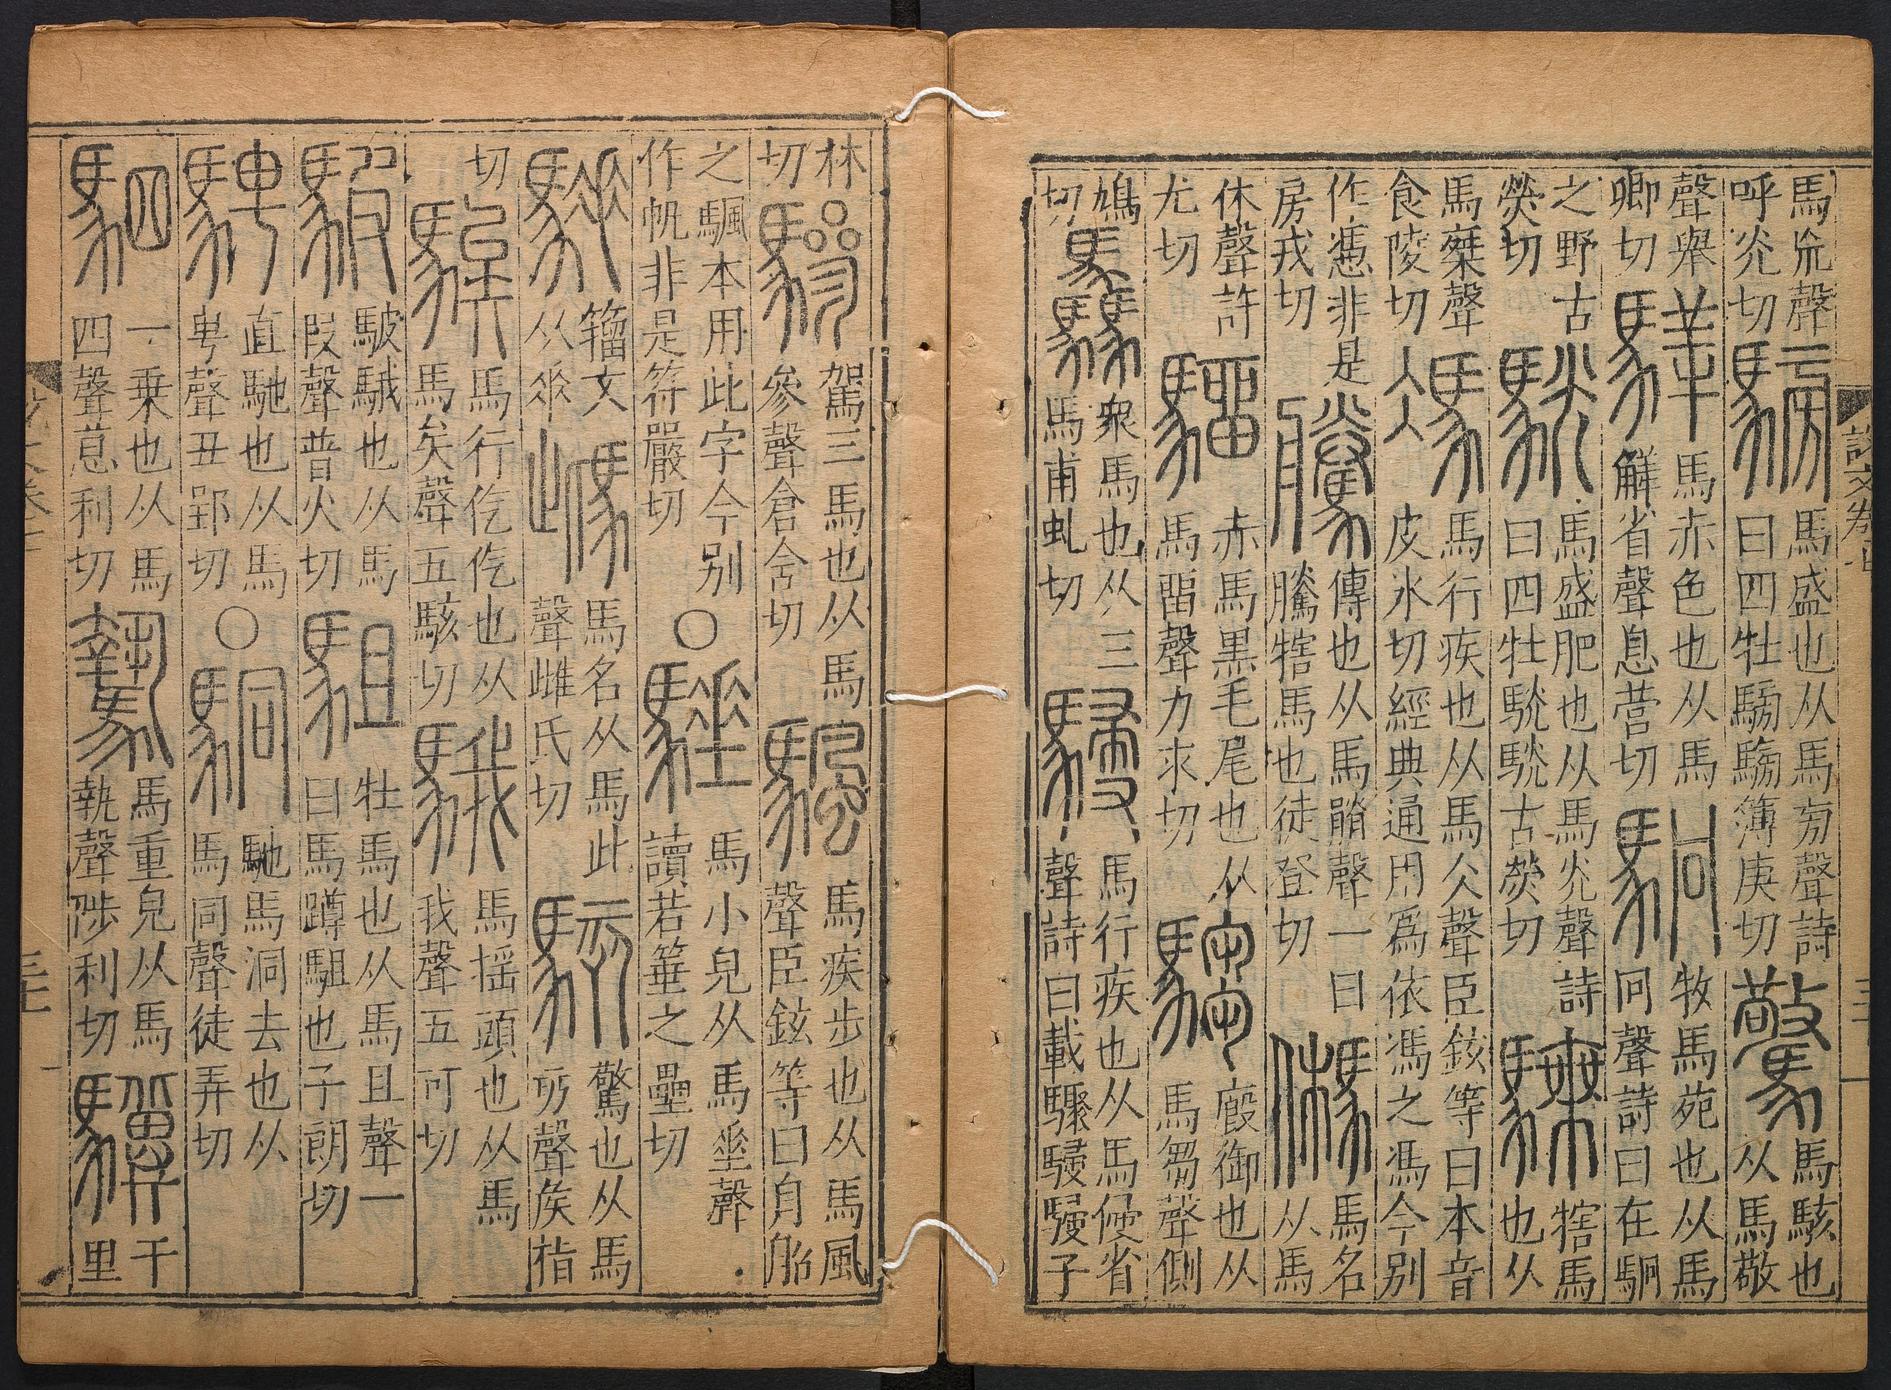 馬㐬聲
呼炗切
騯
馬盛也从馬㫄聲詩
曰四牡騯騯簿庚切
驚
馬駭也
从馬敬
聲舉
卿切
騂
馬赤色也从馬
觲省聲息營切
駉
牧馬苑也从馬
冋聲詩曰在駉
之野古
熒切
駫
馬盛肥也从馬炗聲詩
曰四牡駫駫古熒切
騬
犗馬
也从
馬椉聲
食陵切
馮
馬行疾也从馬仌聲臣鉉等曰本音
皮冰切經典通用爲依馮之馮今别
作憑非是
房戎切
騰
傳也从馬朕聲一曰
騰犗馬也徒登切
䭷
馬名
从馬
休聲許
尤切
騮
赤馬黒毛尾也从
馬畱聲力求切
騶
廄御也从
馬芻聲側
鳩
切
驫
衆馬也从三
馬甫虬切
駸
馬行疾也从馬㑴省
聲詩曰載驟駸駸子
林
切
驂
駕三馬也从馬
參聲倉含切
颿
馬疾步也从馬風
聲臣鉉等曰舟船
之颿本用此字今别
作帆非是符嚴切
○
䯬
馬小皃从馬垂聲
讀若箠之壘切
籀文
从𠂹
馬名从馬此
聲雌氏切
驚也从馬
丏聲矦指
切
騃
馬行仡仡也从
馬矣聲五駭切
騀
馬搖頭也从馬
我聲五可切
駊
駊騀也从馬
叚聲普火切
駔
牡馬也从馬且聲一
曰馬蹲駔也子朗切
騁
直馳也从馬
甹聲丑郢切
○
駧
馳馬洞去也从
馬同聲徒弄切
駟
一乗也从馬
四聲息利切
䭹
馬重皃从馬
執聲陟利切
驥
千
里
說文卷七